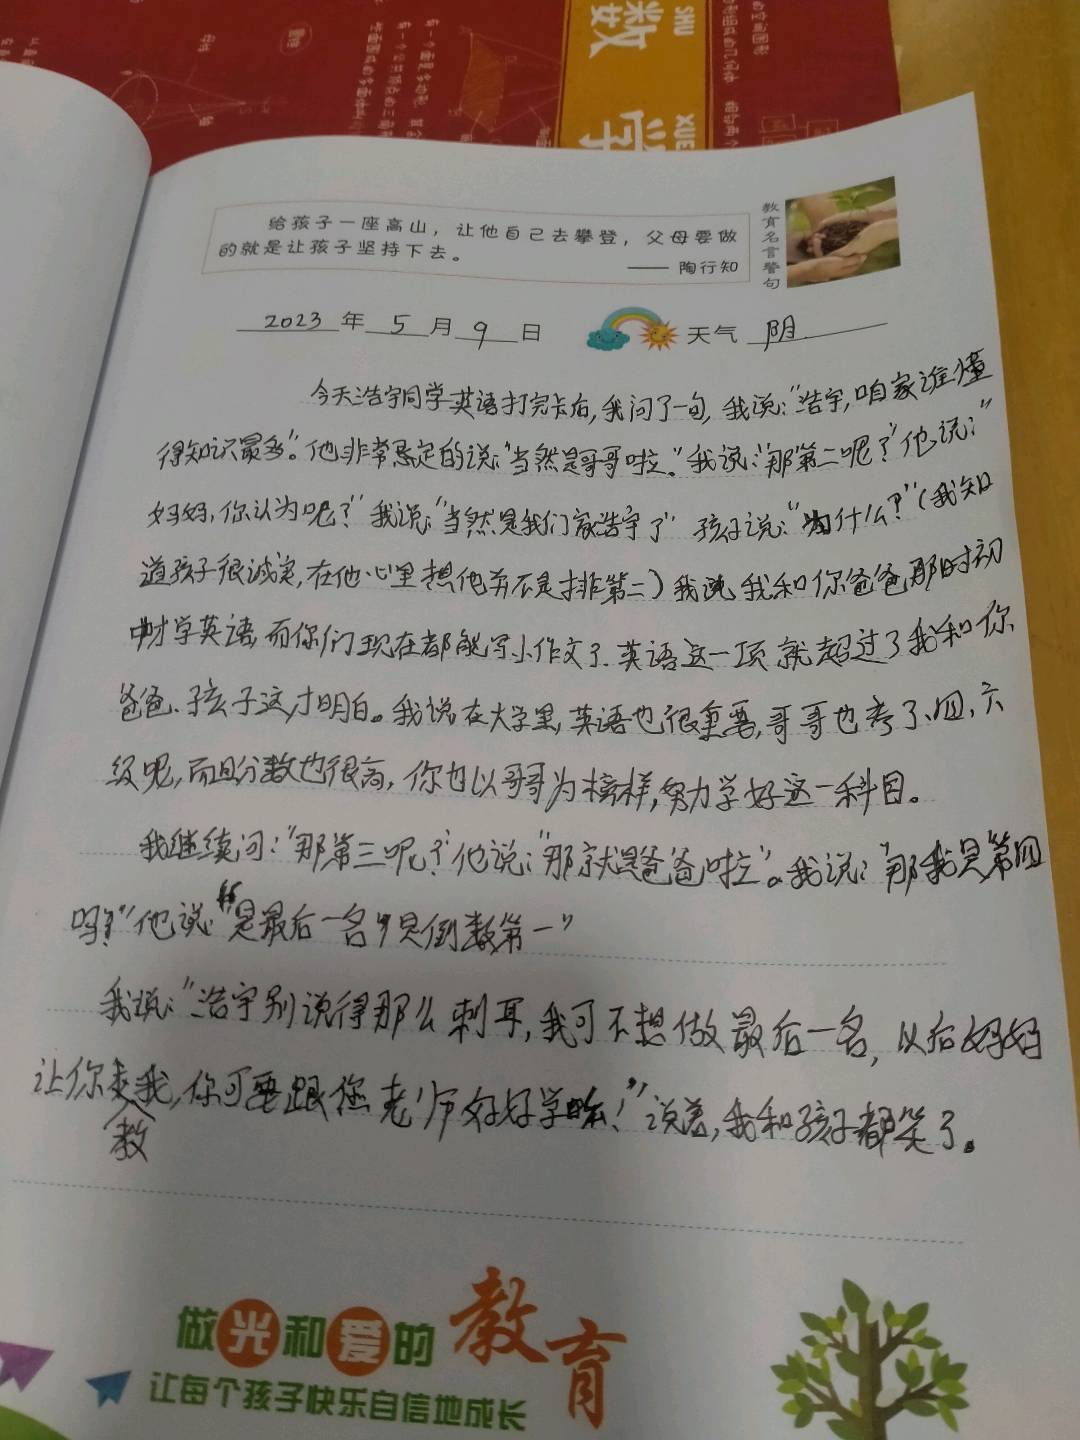 数学
SHU
XUE
给孩子一座高山，让他自己去攀登，父母要做
的就是让孩子坚持下去。
—— 陶行知
教育名言警句
2023年5月9日 天气 阴
今天浩宇同学英语打完卡后,我问了一句,我说:"浩宇,咱家谁懂
得知识最多"。他非常坚定的说:"当然是哥哥啦。"我说:"那第二呢?"他说:"
妈妈,你认为呢?"我说:"当然是我们家浩宇了"孩子说:"为什么?"(我知
道孩子很诚实,在他心里想他并不是排第二)我说我和你爸爸那时初
中才学英语,而你们现在都能写小作文了.英语这一项就超过了我和你
爸爸.孩子这才明白。我说在大学里,英语也很重要,哥哥也考了、四、六
级呢,而且分数也很高,你也以哥哥为榜样,努力学好这一科目。
我继续问:"那第三呢?"他说:"那就是爸爸啦"。我说:"那我是第四
吗?"他说:"是最后一名,是倒数第一"
我说:"浩宇别说得那么刺耳,我可不想做最后一名,以后妈妈
让你教我,你可要跟您老师好好学啦!"说着,我和孩子都笑了。
做光和爱的教育
让每个孩子快乐自信地成长